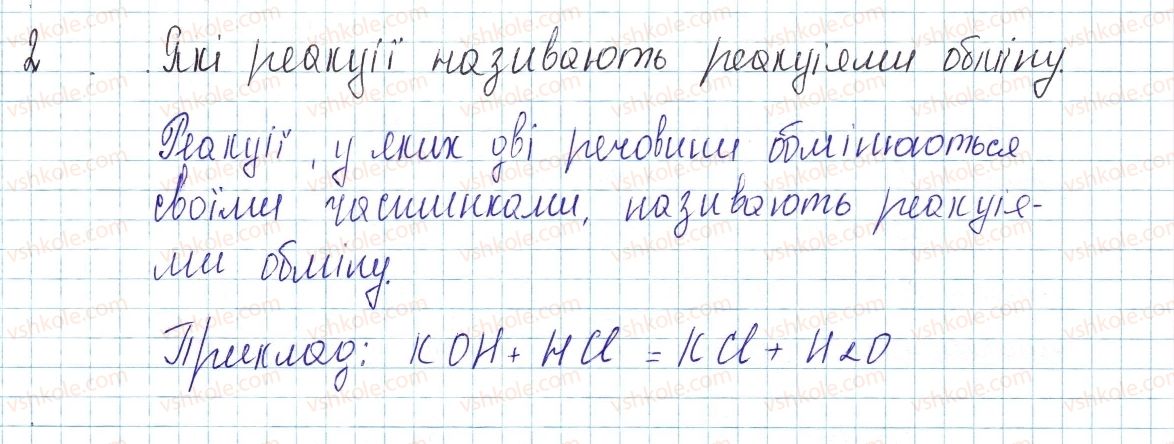 2 . Які реакції називають реакціями обміну.
Реакції, у яких дві речовини обмінюються
своїми частинками, називають реакція-
ми обміну.
Приклад: KOH + HCl = KCl + H2O